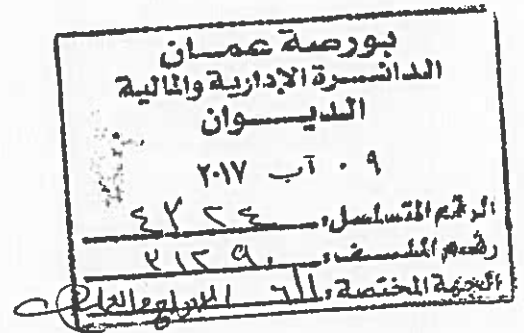 بورصة عمان
الدائرة الإدارية والمالية
الديوان
٠٩ آب ٢٠١٧
الرقم المتسلسل: ٤٢٢٤
رقم الملف: ٣١٢٩٠
الجهة المختصة: